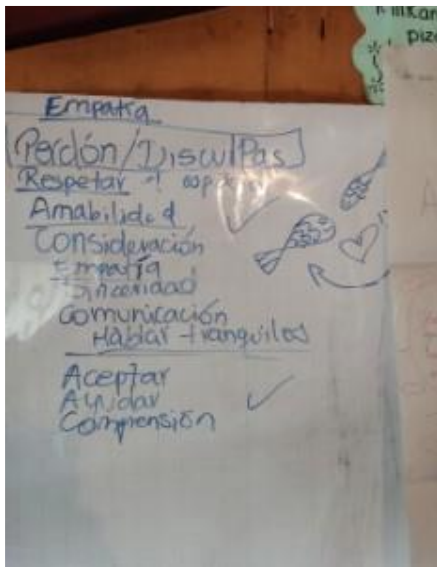 Empatía
Perdón/Disculpas
Respetar el
Amabilidad
Consideración
Empatía
Sinceridad
Comunicación
Hablar tranquilos
Aceptar
Ayudar
Comprensión